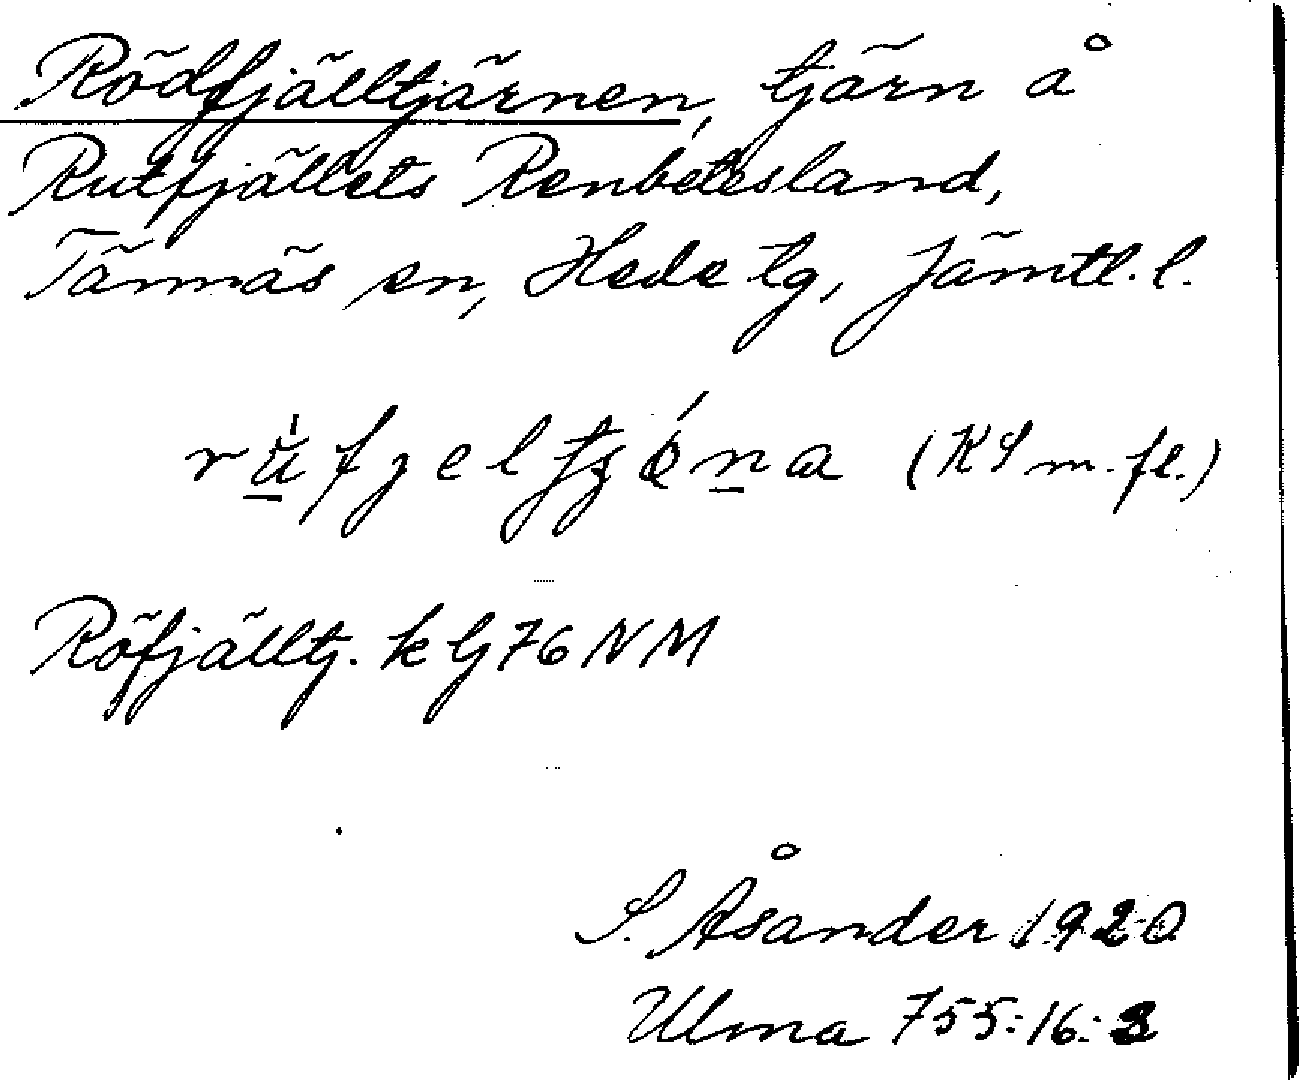 Rödfjälltjärnen, tjärn å
Rutfjällets Renbetesland,
Tännäs sn, Hede tg, Jämtl. l.
(KS m. fl.)
Röfjälltj. k lj 76 NM
S. Åsander 1920
Ulma 755:16:3